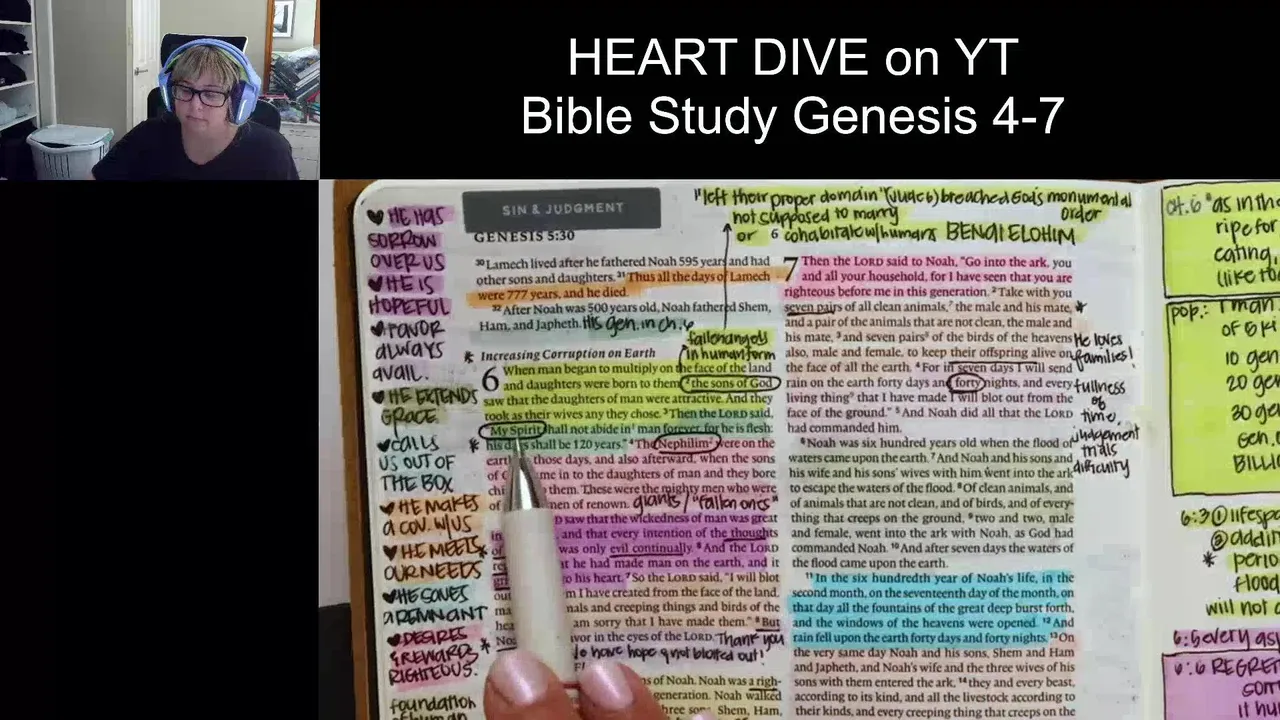 HEART DIVE on YT
Bible Study Genesis 4-7
♥ HE HAS
SORROW
OVER US
♥ HE IS
HOPEFUL
♥ FAVOR
ALWAYS
AVAIL.
♥ HE EXTENDS
GRACE.
♥ CALLS
US OUT OF
THE BOX
♥ HE MAKES
A COV. W/US
♥ HE MEETS
OUR NEEDS
♥ HE SAVES
A REMNANT
♥ DESIRES
& REWARDS
RIGHTEOUS.
foundation
of human
SIN & JUDGMENT
GENESIS 5:30
"left their proper domain" (Jude 6) breached God's monumental
order
not supposed to marry
or cohabitate w/humans BENAI ELOHIM
6
30 Lamech lived after he fathered Noah 595 years and had
other sons and daughters. 31 Thus all the days of Lamech
were 777 years, and he died.
32 After Noah was 500 years old, Noah fathered Shem,
Ham, and Japheth. His gen. in ch. 6
fallen angels
in human form
* Increasing Corruption on Earth
6 When man began to multiply on the face of the land
and daughters were born to them, 2 the sons of God
saw that the daughters of man were attractive. And they
took as their wives any they chose. 3 Then the LORD said,
"My Spirit shall not abide in man forever, for he is flesh:
* his days shall be 120 years." 4 The Nephilim were on the
earth those days, and also afterward, when the sons
of me in to the daughters of man and they bore
chi them. These were the mighty men who were
of men of renown. giants/"fallen ones"
saw that the wickedness of man was great
in and that every intention of the thoughts
of was only evil continually. 6 And the LORD
at he had made man on the earth, and it
to his heart. 7 So the LORD said, "I will blot
out I have created from the face of the land,
ma mals and creeping things and birds of the
hea am sorry that I have made them." 8 But
* Noa vor in the eyes of the LORD. Thank you
to have hope & not blotted out!
ns of Noah. Noah was a righ-
generation. Noah walked
Shem, Ham,
7 Then the LORD said to Noah, "Go into the ark, you
and all your household, for I have seen that you are
righteous before me in this generation. 2 Take with you
seven pairs of all clean animals, the male and his mate, *
and a pair of the animals that are not clean, the male and
his mate, 3 and seven pairs of the birds of the heavens
also, male and female, to keep their offspring alive on
the face of all the earth. 4 For in seven days I will send
rain on the earth forty days and forty nights, and every
living thing that I have made I will blot out from the
face of the ground." 5 And Noah did all that the LORD
had commanded him.
6 Noah was six hundred years old when the flood of
waters came upon the earth. 7 And Noah and his sons and
his wife and his sons' wives with him went into the ark
to escape the waters of the flood. 8 Of clean animals, and
of animals that are not clean, and of birds, and of every-
thing that creeps on the ground, 9 two and two, male
and female, went into the ark with Noah, as God had
commanded Noah. 10 And after seven days the waters of
the flood came upon the earth.
11 In the six hundredth year of Noah's life, in the
second month, on the seventeenth day of the month, on
that day all the fountains of the great deep burst forth,
and the windows of the heavens were opened. 12 And
rain fell upon the earth forty days and forty nights. 13 On
the very same day Noah and his sons, Shem and Ham
and Japheth, and Noah's wife and the three wives of his
sons with them entered the ark, 14 they and every beast,
according to its kind, and all the livestock according to
their kinds, and every creeping thing that creeps on the
He loves
families!
fullness
of
time,
judgement
trials
difficulty
ch. 6 "as in the
ripe for
eating,
(like to
pop.: 1 man
of 6 k
10 gen
20 gen
30 gen
Gen.
BILLIO
6:3 ① lifesp
② addi
* perio
flood
will not a
6:5 every as
6:6 REGRET
som
it hu